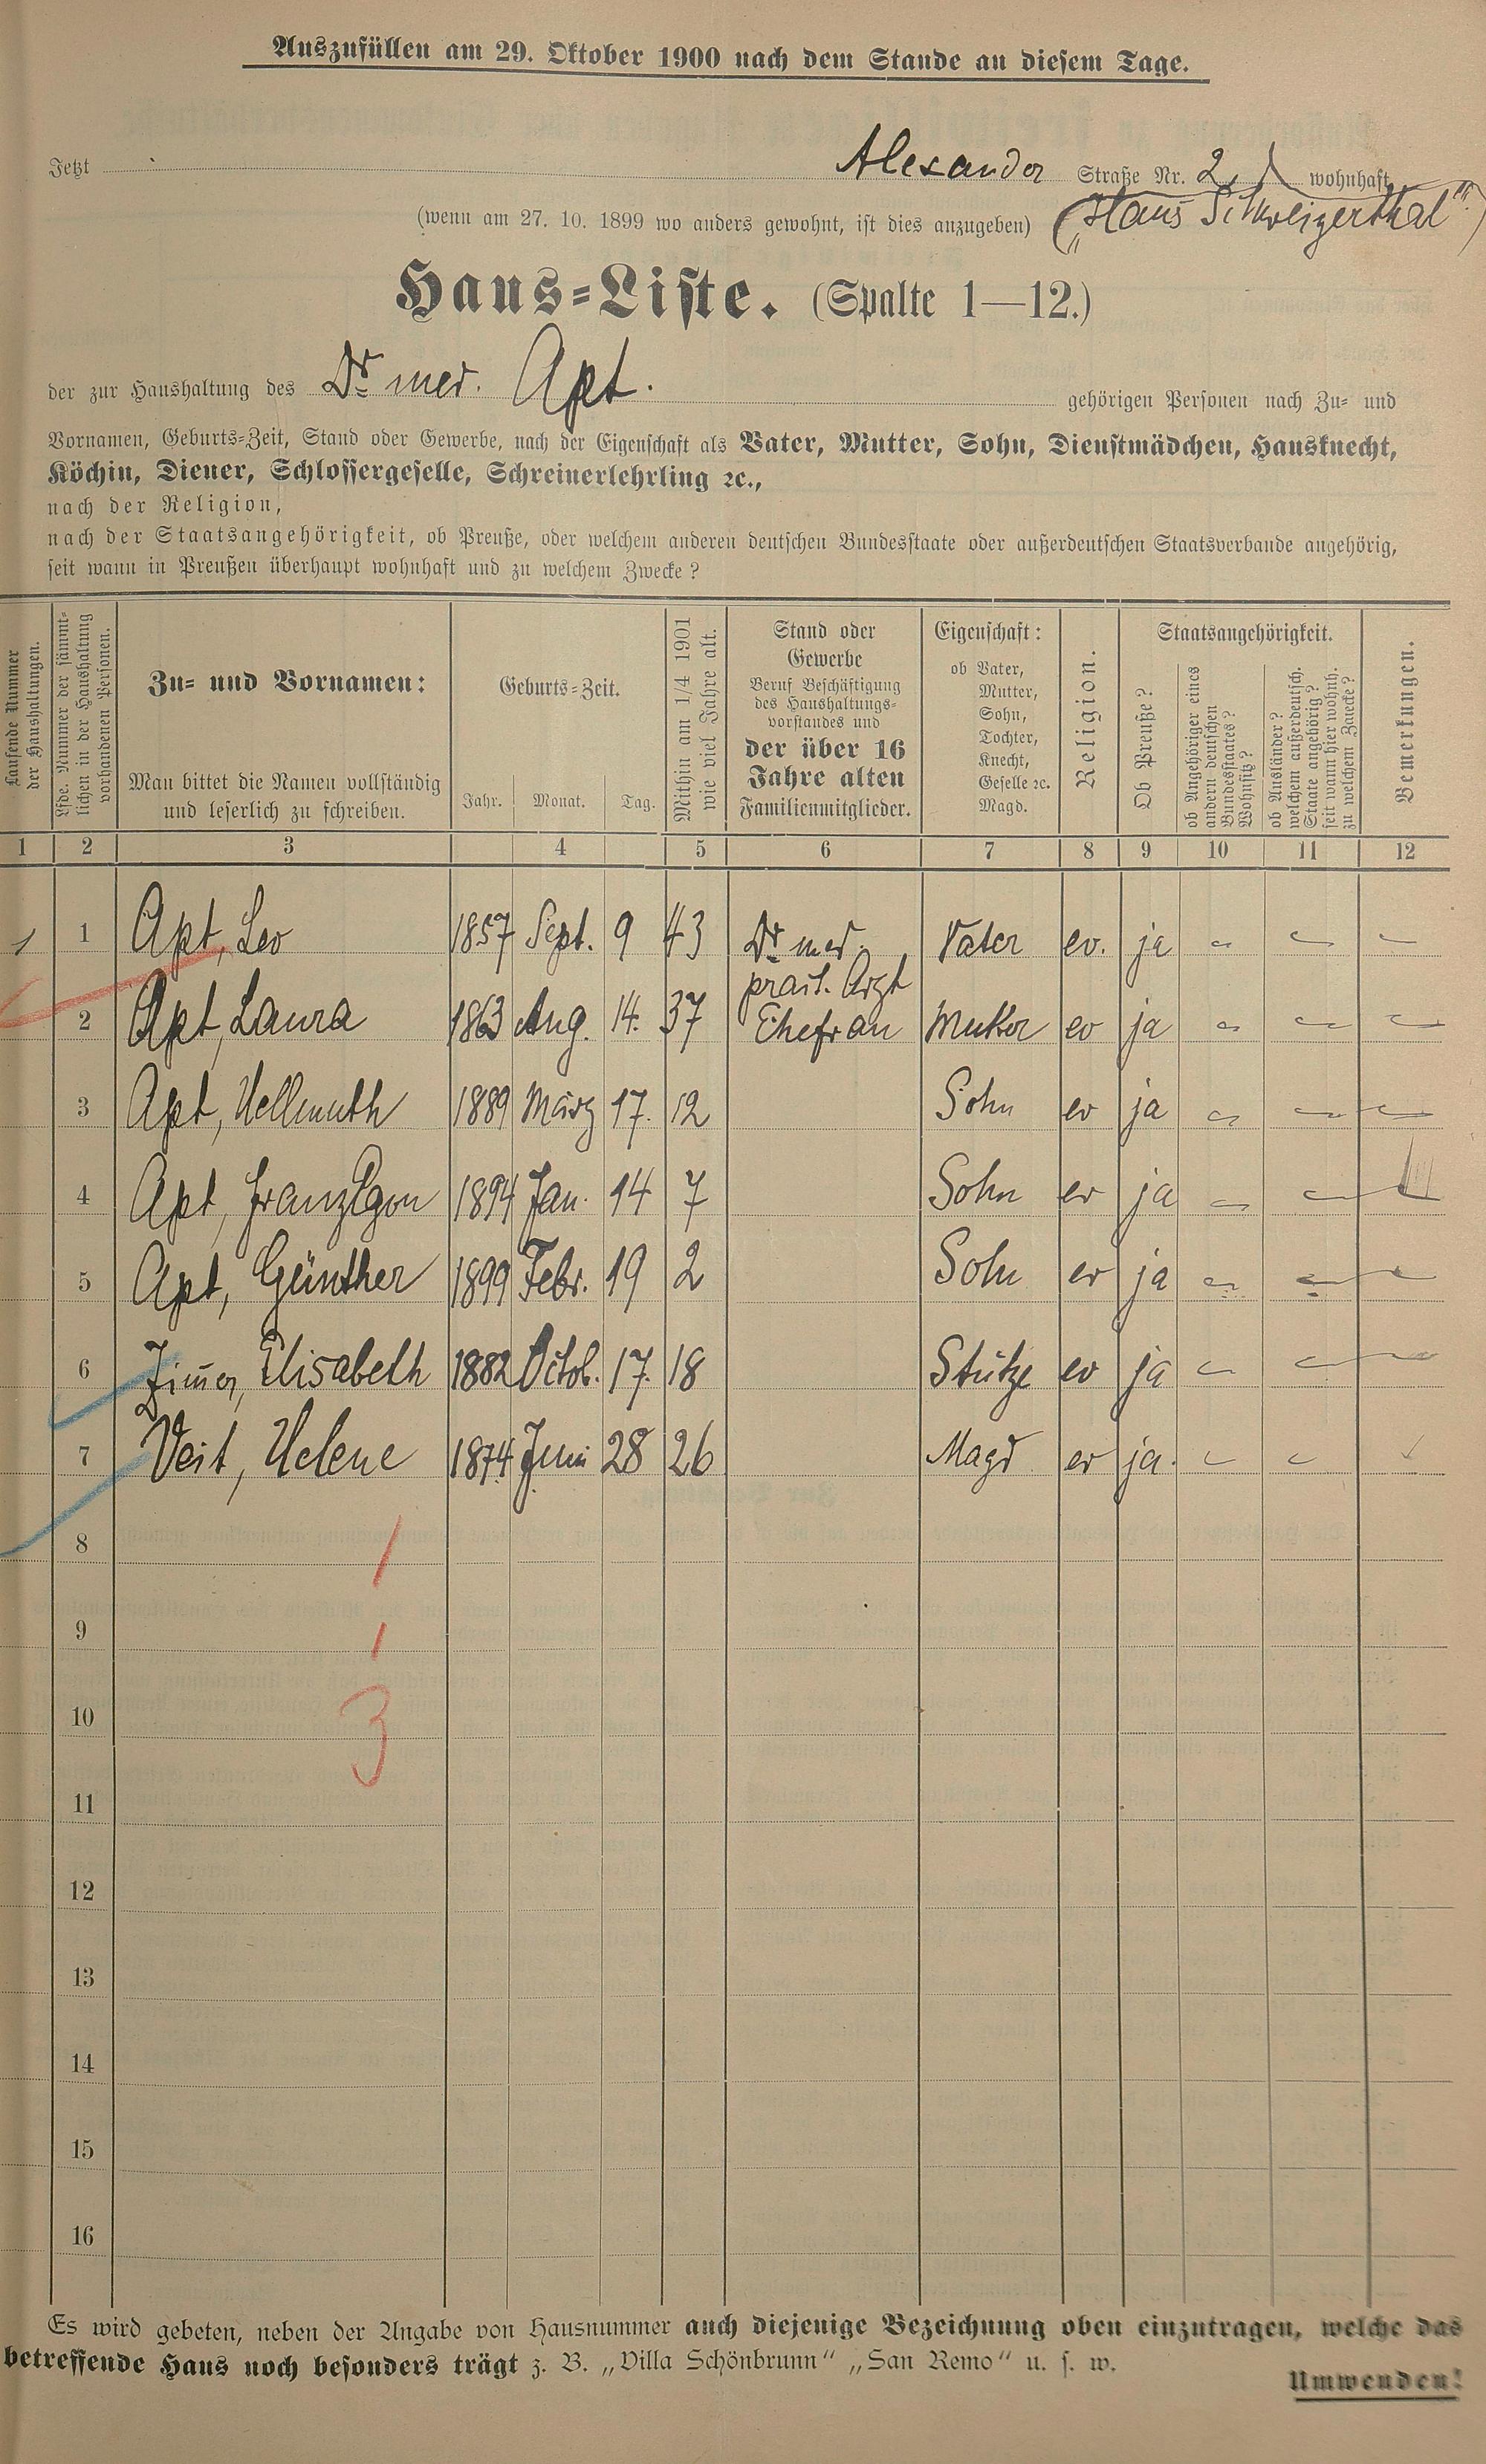 Auszufüllen am 29. Oktober 1900 nach dem Stande an diesem Tage.
Jetzt Alexander Straße Nr. 2, wohnhaft
(wenn am 27. 10. 1899 wo anders gewohnt, ist dies anzugeben) („Haus Schweizerthal“)
Haus-Liste. (Spalte 1—12.)
der zur Haushaltung des Dr. med. Apt. gehörigen Personen nach Zu- und
Vornamen, Geburts-Zeit, Stand oder Gewerbe, nach der Eigenschaft als Vater, Mutter, Sohn, Dienstmädchen, Hausknecht,
Köchin, Diener, Schlossergeselle, Schreinerlehrling ꝛc.,
nach der Religion,
nach der Staatsangehörigkeit, ob Preuße, oder welchem anderen deutschen Bundesstaate oder außerdeutschen Staatsverbande angehörig,
seit wann in Preußen überhaupt wohnhaft und zu welchem Zwecke?
Laufende Nummer
der Haushaltungen.
Lfde. Nummer der sämmt-
lichen in der Haushaltung
vorhandenen Personen.
Zu- und Vornamen:
Man bittet die Namen vollständig
und leserlich zu schreiben.
Geburts-Zeit.
Jahr. Monat. Tag.
Mithin am 1/4 1901
wie viel Jahre alt.
Stand oder
Gewerbe
Beruf Beschäftigung
des Haushaltungs-
vorstandes und
der über 16
Jahre alten
Familienmitglieder.
Eigenschaft:
ob Vater,
Mutter,
Sohn,
Tochter,
Knecht,
Geselle ꝛc.
Magd.
Religion.
Staatsangehörigkeit.
Ob Preuße?
ob Angehöriger eines
andern deutschen
Bundesstaates?
Wohnsitz?
ob Ausländer?
welchem außerdeutsch.
Staate angehörig?
seit wann hier wohnh.
zu welchem Zwecke?
Bemerkungen.
1 2 3 4 5 6 7 8 9 10 11 12
1 1 Apt, Leo 1857 Sept. 9 43 Dr. med. Vater ev. ja
prakt. Arzt
2 Apt, Laura 1863 Aug. 14. 37 Ehefrau Mutter ev ja
3 Apt, Hellmuth 1889 März 17. 12 Sohn ev ja
4 Apt, Franz Egon 1894 Jan. 14 7 Sohn ev ja
5 Apt, Günther 1899 Febr. 19 2 Sohn ev ja
6 Zimer, Elisabeth 1882 Octob. 17. 18 Stütze ev ja
7 Veit, Helene 1874 Juni 28 26 Magd ev ja.
8 1
9 1
10 3
11
12
13
14
15
16
Es wird gebeten, neben der Angabe von Hausnummer auch diejenige Bezeichnung oben einzutragen, welche das
betreffende Haus noch besonders trägt z. B. „Villa Schönbrunn“ „San Remo“ u. s. w.
Umwenden!